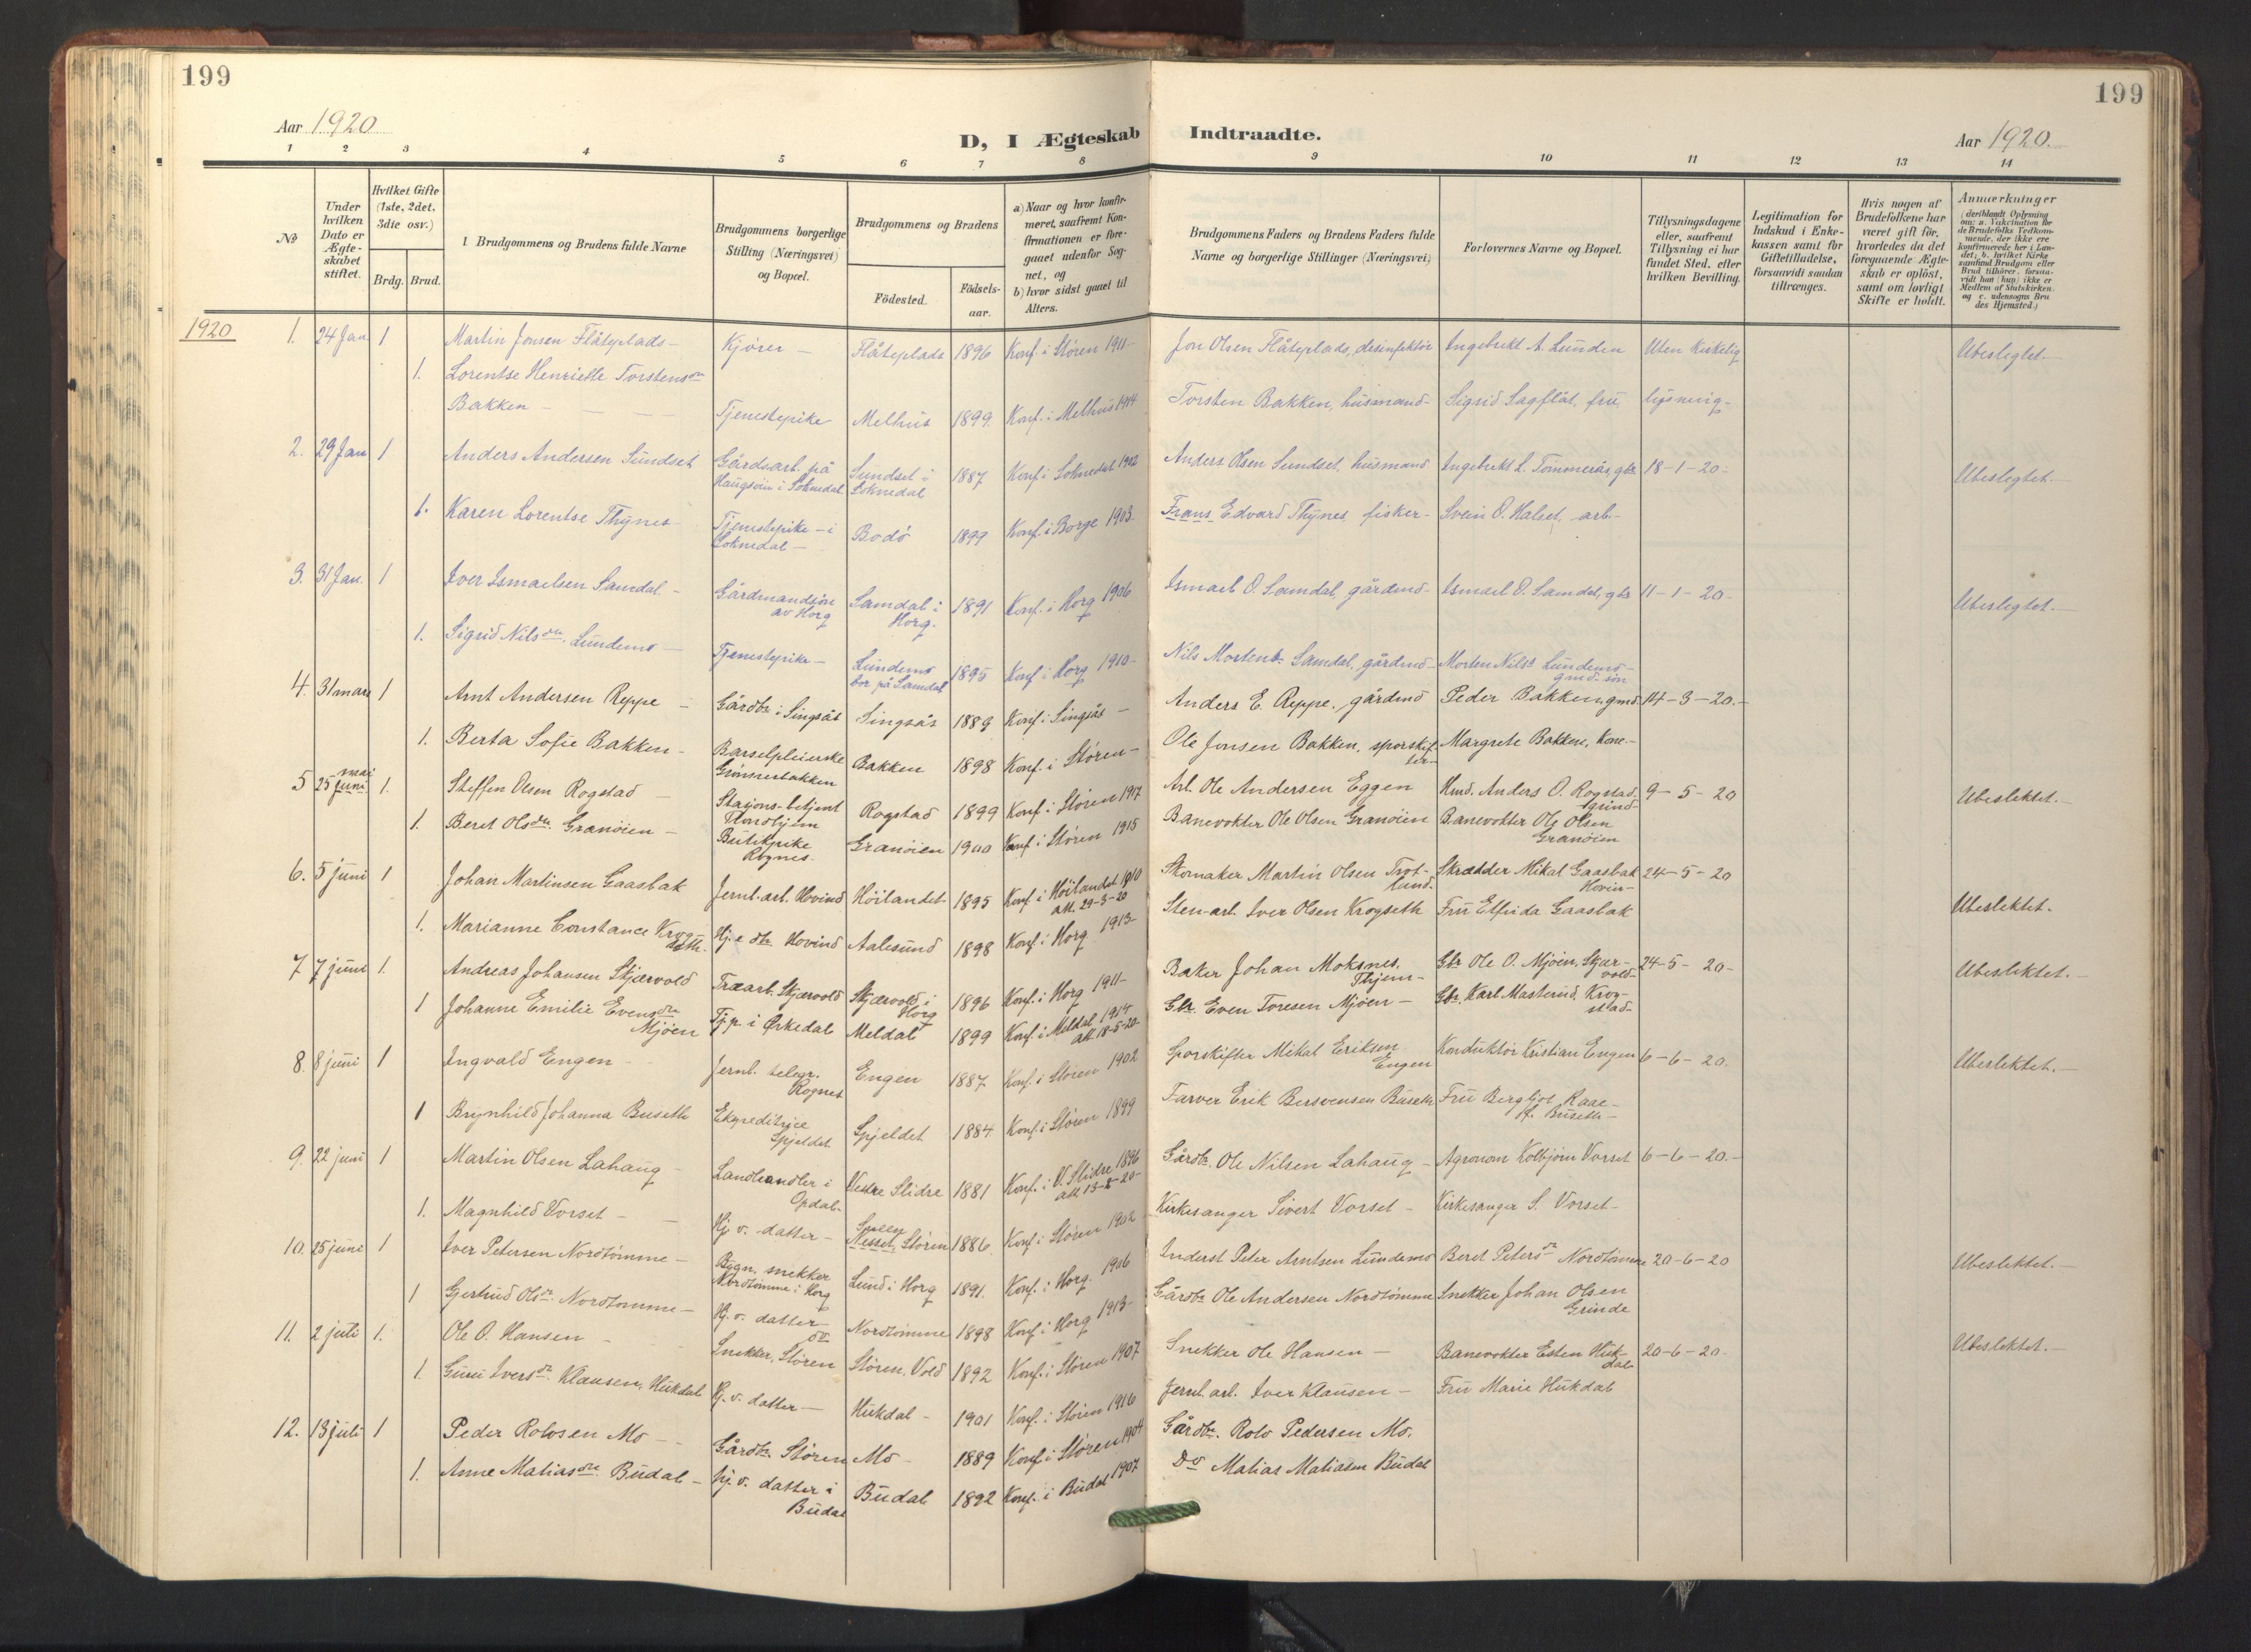 199
199
Aar 1920
D, I Ægteskab Indtraadte.
Aar 1920.
1 2 3 4 5 6 7 8 9 10 11 12 13 14
No
Under hvilken Dato er Ægteskabet stiftet.
Hvilket Gifte (1ste, 2det, 3die osv.)
Brdg. Brud.
Brudgommens og Brudens fulde Navne
Brudgommens borgerlige Stilling (Næringsvei) og Bopæl.
Brudgommens og Brudens
Födested.
Födselsaar.
a) Naar og hvor konfirmeret, saafremt Konfirmationen er foregaaet udenfor Sognet, og
b) hvor sidst gaaet til Alters.
Brudgommens Faders og Brudens Faders fulde Navne og borgerlige Stillinger (Næringsvei)
Forlovernes Navne og Bopæl.
Tillysningsdagene eller, saafremt Tillysning ei har fundet Sted, efter hvilken Bevilling.
Legitimation for Indskud i Enkekassen samt for Giftetilladelse, forsaavidt saadan tiltrænges.
Hvis nogen af Brudefolkene har været gift før, hvorledes da det foregaaende Ægteskab er oplöst, samt om lovligt Skifte er holdt.
Anmærkninger
(deriblandt Oplysning om: a. Vakcination for de Brudefolks Vedkommende, der ikke ere konfirmerede her i Landet; b. hvilket Kirkesamfund Brudgom eller Brud tilhörer, forsaavidt han (hun) ikke er Medlem af Statskirken, og c. udensogns Brudes Hjemsted.)
1920
1. 24 Jan 1 Martin Jonsen Flåteplads - Kjører - Flåteplads 1896 Konf. i Støren 1911 - Jon Olsen Flåteplads, desinfektør Ingebrikt A. Lunden Uten kirkelig Ubeslegtet.
1. Lorentse Henriette Torstensdtr
Bakken - Tjenestepike Melhus 1899. Konf. i Melhus 1914 Torsten Bakken, husmand - Sigrid Sagflåt, fru, lysning -
2. 29 Jan 1 Anders Andersen Sundset Gårdsarb. på Haugsøien i Soknedal Sundset i Soknedal 1887 Konf. i Soknedal 1902 Anders Olsen Sundset, husmand Ingebrikt L. Tømmerås, gbr 18-1-20- Ubeslegtet.
1. Karen Lorentse Thynes Tjenestepike - i Soknedal - Bodø 1899 Konf. i Borge 1903. Frans Edvard Thynes, fisker - Svein O. Halset, arb. -
3. 31 Jan. 1 Iver Ismaelsen Samdal - Gårdmandsøn av Horg Samdal i Horg. 1891 Konf. i Horg 1906 Ismael O. Samdal, gårdmd - Ismael O. Samdal, gbr 11-1-20- Ubeslegtet.
1. Sigrid Nilsdtr. Lundemo - Tjenestepike - Lundemo bor på Samdal 1895 Konf. i Horg 1910 - Nils Mortens. Samdal, gårdmd - Morten Nilsn Lundemo - gmd. søn
4. 31 mars 1 Arnt Andersen Reppe - Gårdbr i Singsås Singsås 1889 Konf. i Singsås - Anders E. Reppe, gårdmd Peder Bakken, gmd. 14-3-20.-
1. Berta Sofie Bakken - Barselpleierske Grønnesbakken Bakken 1898 Konf. i Støren - Ole Jonsen Bakken, sporskifter - Margrete Bakken, kone. -
5 25 juni mai 1. Steffen Olsen Rogstad - Stasjons-betjent Trondhjem Rogstad 1899 Konf. i Støren 1917 Arb. Ole Andersen Eggen Hmd. Anders O. Rogstad - 9-5-20 Ubeslektet. -
1. Beret Olsdtr. Granøien - Butikpike Rognes. Granøien 1900 Konf. i Støren 1915 Banevokter Ole Olsen Granøien Banevokter Ole Olsen Granøien
6. 5 juni 1 Johan Martinsen Gaasbak Jernb. arb. Hovind Höilandet 1895 Konf. i Höilandet 1910 alt. 29-3-20 Skomaker Martin Olsen Skrædder Mikal Gaasbak Hovin - 24-5-20 Ubeslektet.
1. Marianne Constance Krogseth. Hj.e dtr Hovind Aalesund 1898 Konf. i Horg 1913 - Sten-arb. Iver Olsen Krogseth Fru Elfrida Gaasbak
7 7 juni 1. Andreas Johansen Skjærvold Træarb. Skjærvold Skjærvold i Horg 1896 Konf. i Horg 1911 - Baker Johan Moksnes, Thjem - Gbr Ole O. Mjöen, Skjærvold. 24-5-20- Ubeslektet. -
1 Johanne Emilie Evensdtr Mjöen Tj.p. i Ørkedal Meldal 1899 Konf. i Meldal 1914 alt. 18-5-20- Gbr. Even Toresen Mjöen - Gbr. Karl Masterud, Krogstad -
8. 8 juni 1 Ingvald Engen - Jernb. telegr. Rognes Engen 1887 Konf. i Støren 1902 Sporskifter Mikal Eriksen Engen Konduktör Kristian Engen 6-6-20. Ubeslektet. -
1 Brynhild Johanna Buseth Ekspeditrice Spjeldet Spjeldet 1884 Konf. i Støren 1899 Farver Erik Bersvensen Buseth Fru Bergljot Kaae - f. Buseth -
9. 22 juni 1 Martin Olsen Lahaug - Landhandler i Opdal - Vestre Slidre 1881 Konf. i V. Slidre 1896 Gårdbr. Ole Nilsen Lahaug - Agronom Kolbjörn Vorset 6-6-20.-
1. Magnhild Vorset - Hj. v. datter - Nesset, Støren 1886. Konf. i Støren 1902 Kirkesanger Sivert Vorset - Kirkesanger S. Vorset -
10. 25 juni 1 Iver Petersen Nordtømme - Bygn. snekker Nordtømme i Horg Lund i Horg 1891. Konf. i Horg. 1906 Inderst Peter Arntsen Lundemo Beret Petersdr Nordtømme 20-6-20 Ubeslektet. -
1 Gjertrud Olsdr. Nordtømme - Hj. v. datter - Nordtømme 1898 Konf. i Horg 1913 - Gårdbr Ole Andersen Nordtømme Snekker Johan Olsen Grinde
11. 2 juli 1. Ole O. Hansen - Snekker, Støren Støren, Vold 1892 Konf. i Støren 1907 Snekker Ole Hansen - Banevokter Esten Hukdal 20-6-20. Ubeslektet. -
1. Guru Iversdr. Klausen, Hukdal Hj. v. datter - Hukdal - 1901 Konf. i Støren 1916 Jernb. arb. Iver Klausen - Fru Marie Hukdal
12. 13 juli 1 Peder Rolvsen Mo - Gårdbr. Støren Mo - 1889 Konf. i Støren 1904 Gårdbr. Rolv Pedersen Mo.
1. Anne Matiasdtr. Budal - Hj. v. datter i Budal Budal 1892 Konf. i Budal 1907 Do Matias Matiasen Budal